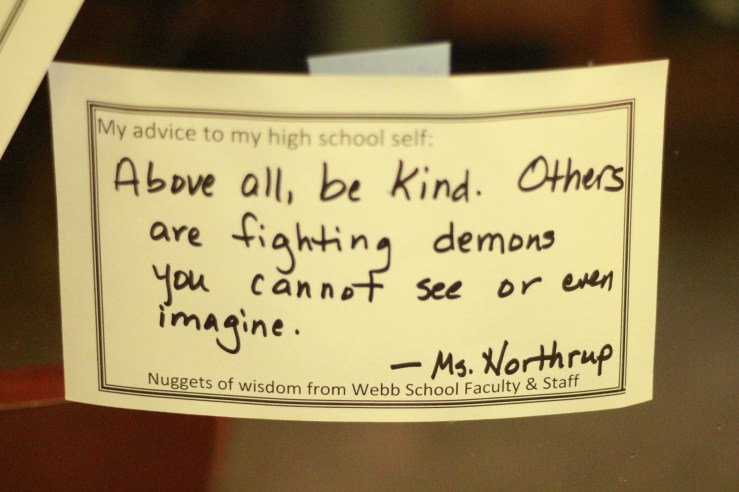 My advice to my high school self:
Above all, be kind. Others
are fighting demons
you cannot see or even
imagine.
— Ms. Northrup
Nuggets of wisdom from Webb School Faculty & Staff